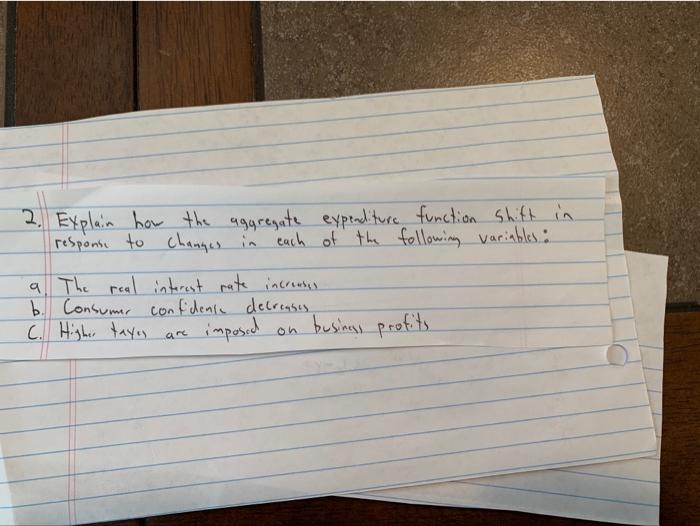 2. Explain how the aggregate expenditure function shift in
response to changes in each of the following variables:
a. The real interest rate increases
b. Consumer confidence decreases
C. Higher taxes are imposed on business profits